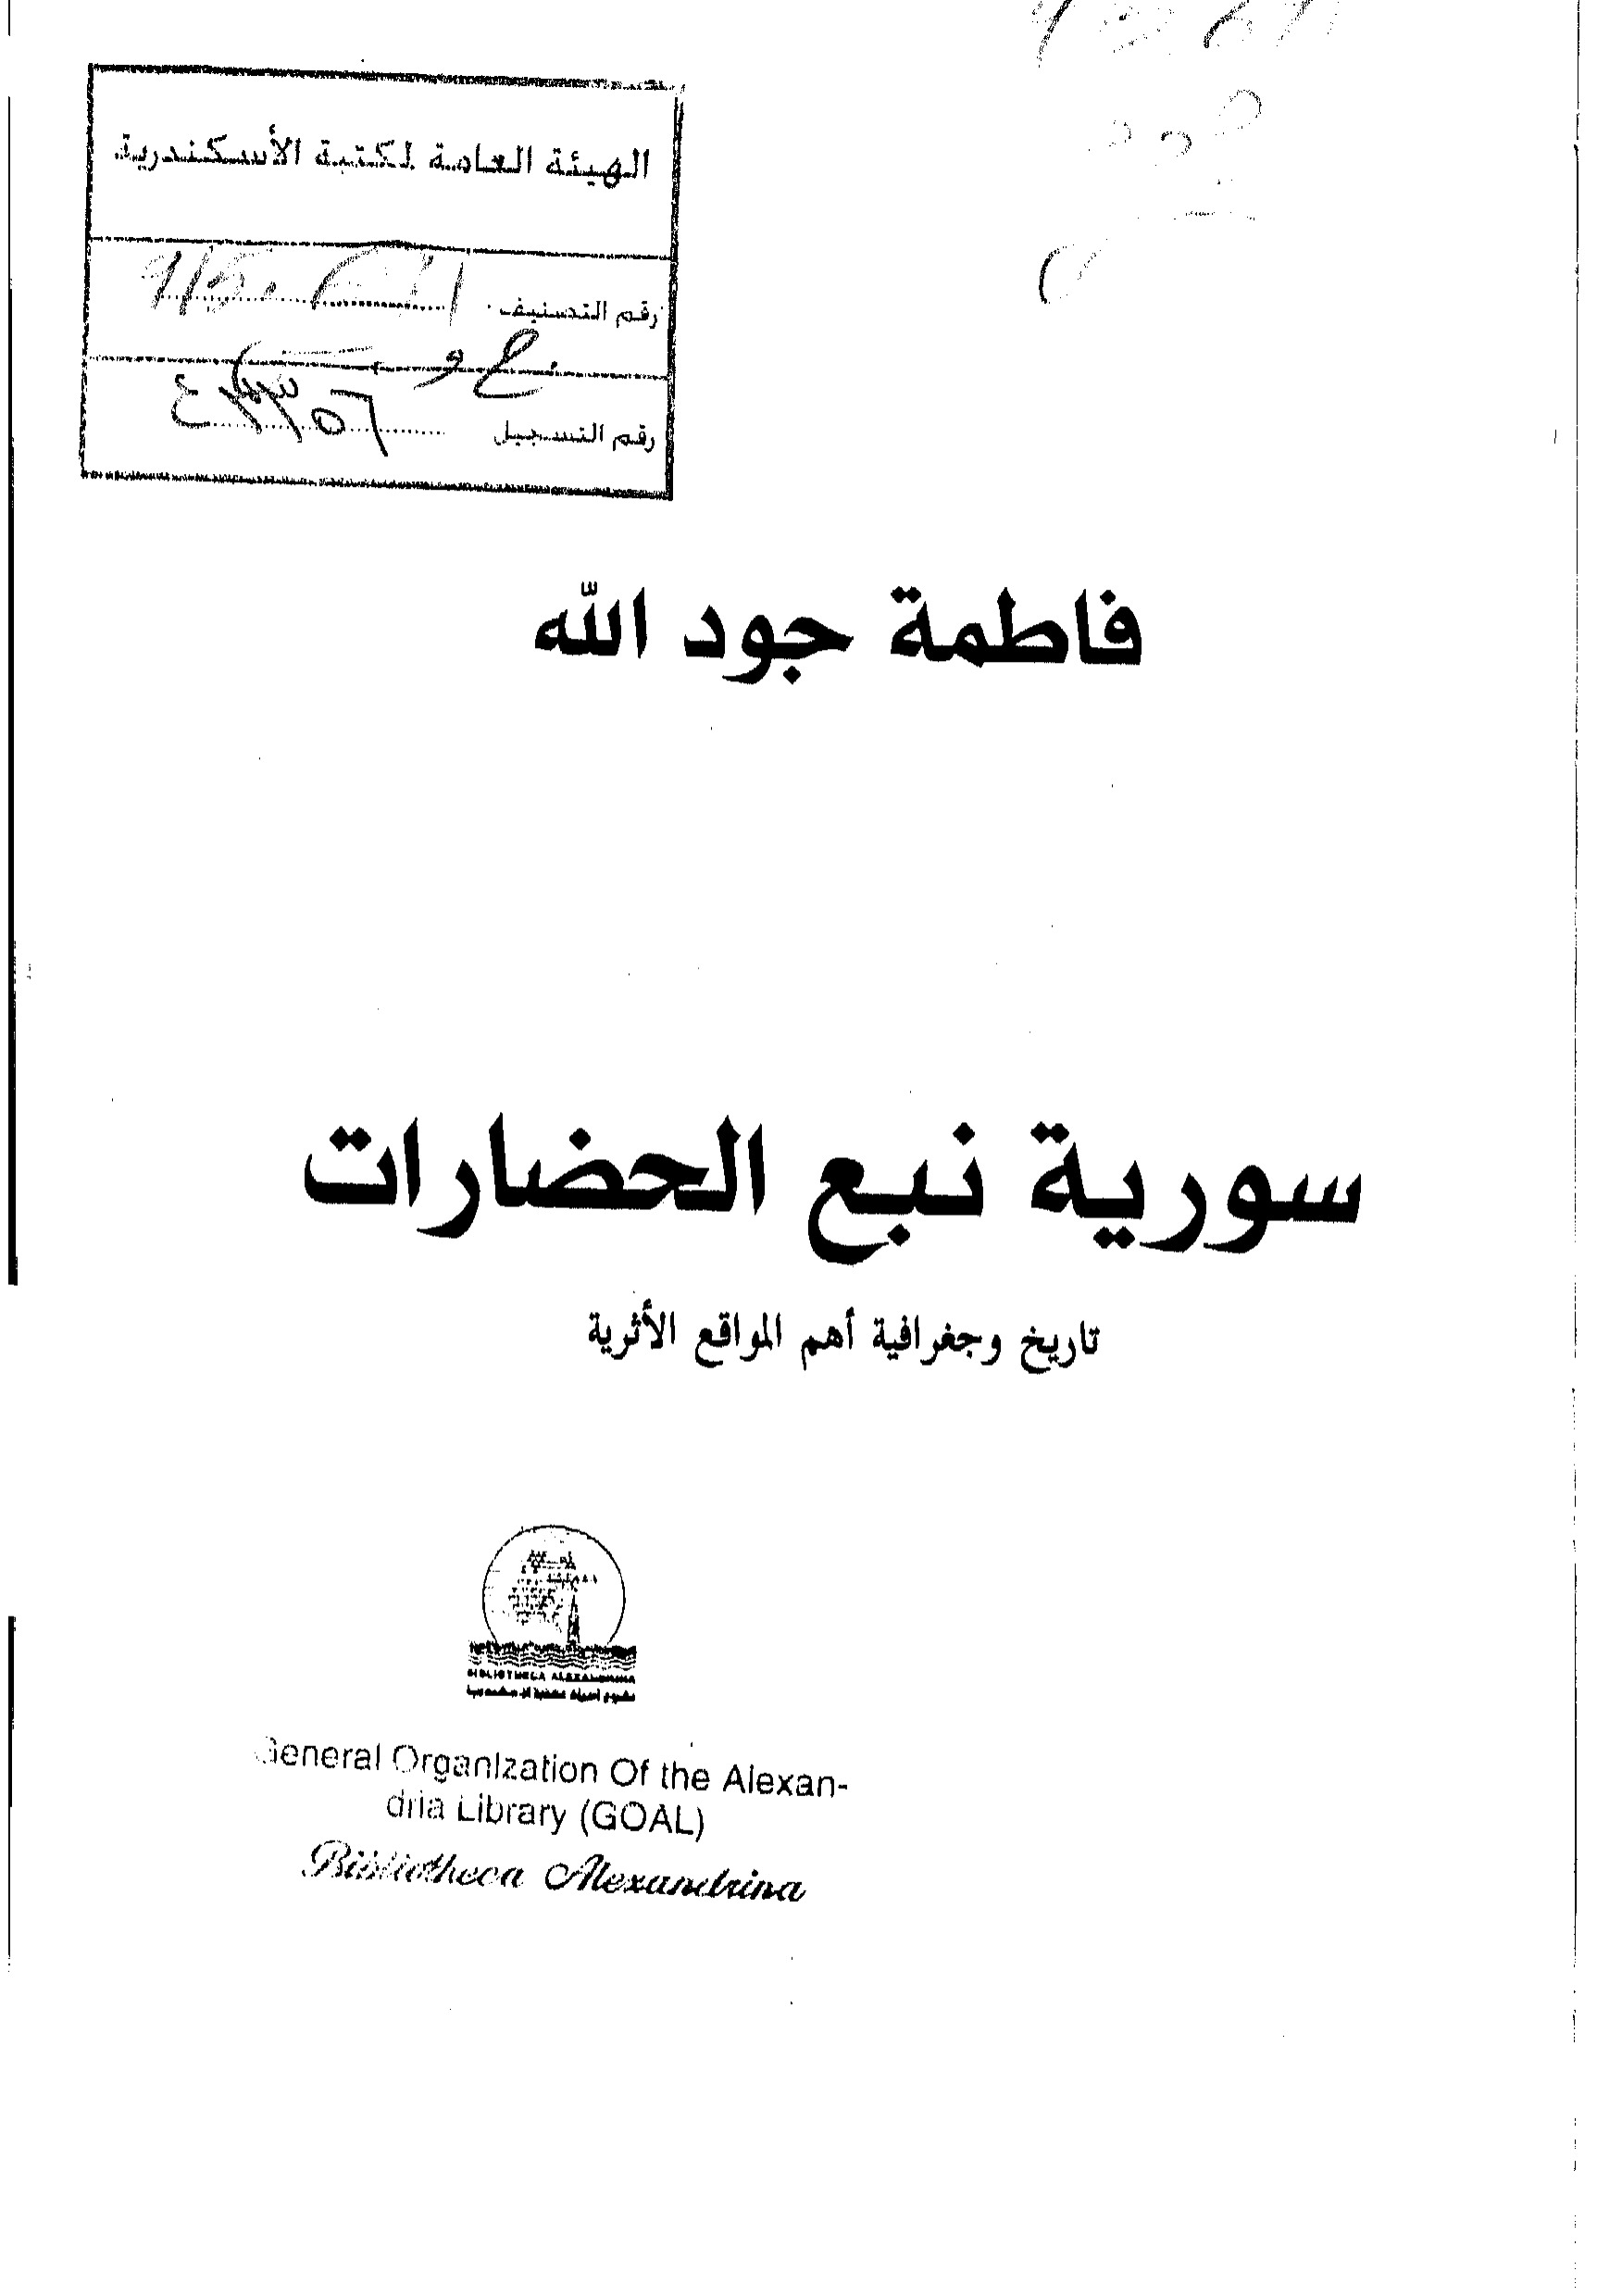 الهيئة العامة لكتبة الأسكندرية
رقم التصنيف
رقم التسجيل
فاطمة جود الله
سورية نبع الحضارات
تاريخ وجغرافية أهم المواقع الأثرية
BIBLIOTHECA ALEXANDRINA
General Organization Of the Alexan-
dria Library (GOAL)
Bibliotheca Alexandrina